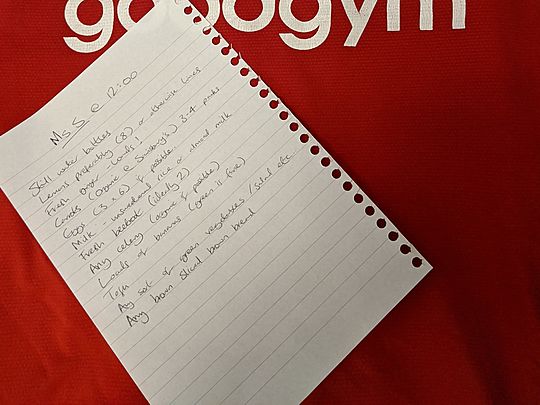 goodgym
Ms S @ 12:00
Still water bottles
Lemons preferably (8) or otherwise limes
Fresh ginger - Loads!
Carrots (Organic @ Sainsbury's) 3-4 packs
Eggs (3 x 6) if possible.
Milk - unsweetened rice or almond milk
Fresh beetroot (ideally 2)
Any celery (organic if possible)
Loads of bananas (green is fine)
Tofu
Any sort of green vegetables / salad etc
Any brown sliced bread